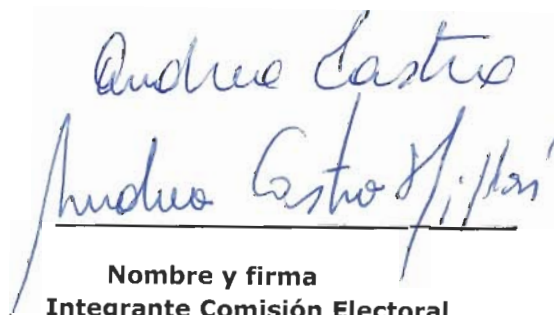 Andrea Castro
Andrea Castro
Nombre y firma
Integrante Comisión Electoral